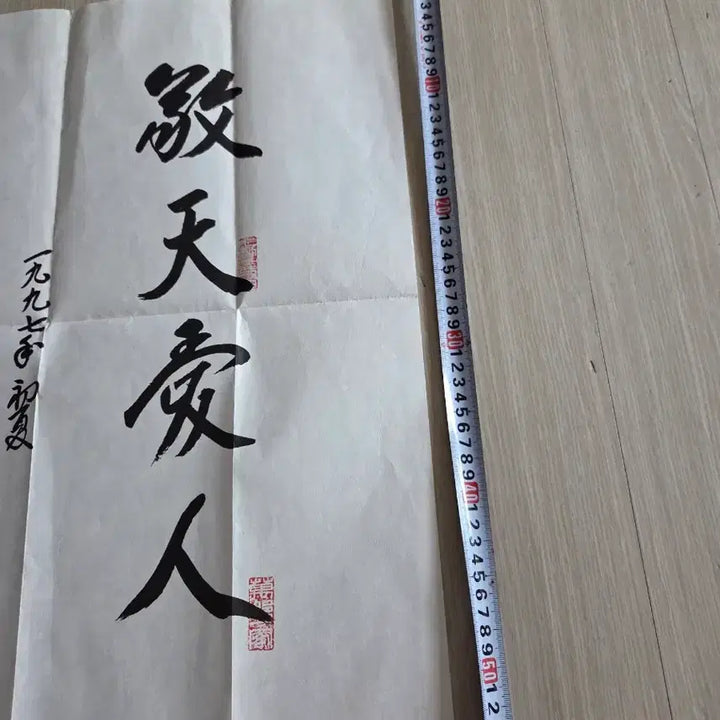 敬天爱人
一九九七年初夏
3 4 5 6 7 8 9 10 1 2 3 4 5 6 7 8 9 20 1 2 3 4 5 6 7 8 9 30 1 2 3 4 5 6 7 8 9 40 1 2 3 4 5 6 7 8 9 50 1 2